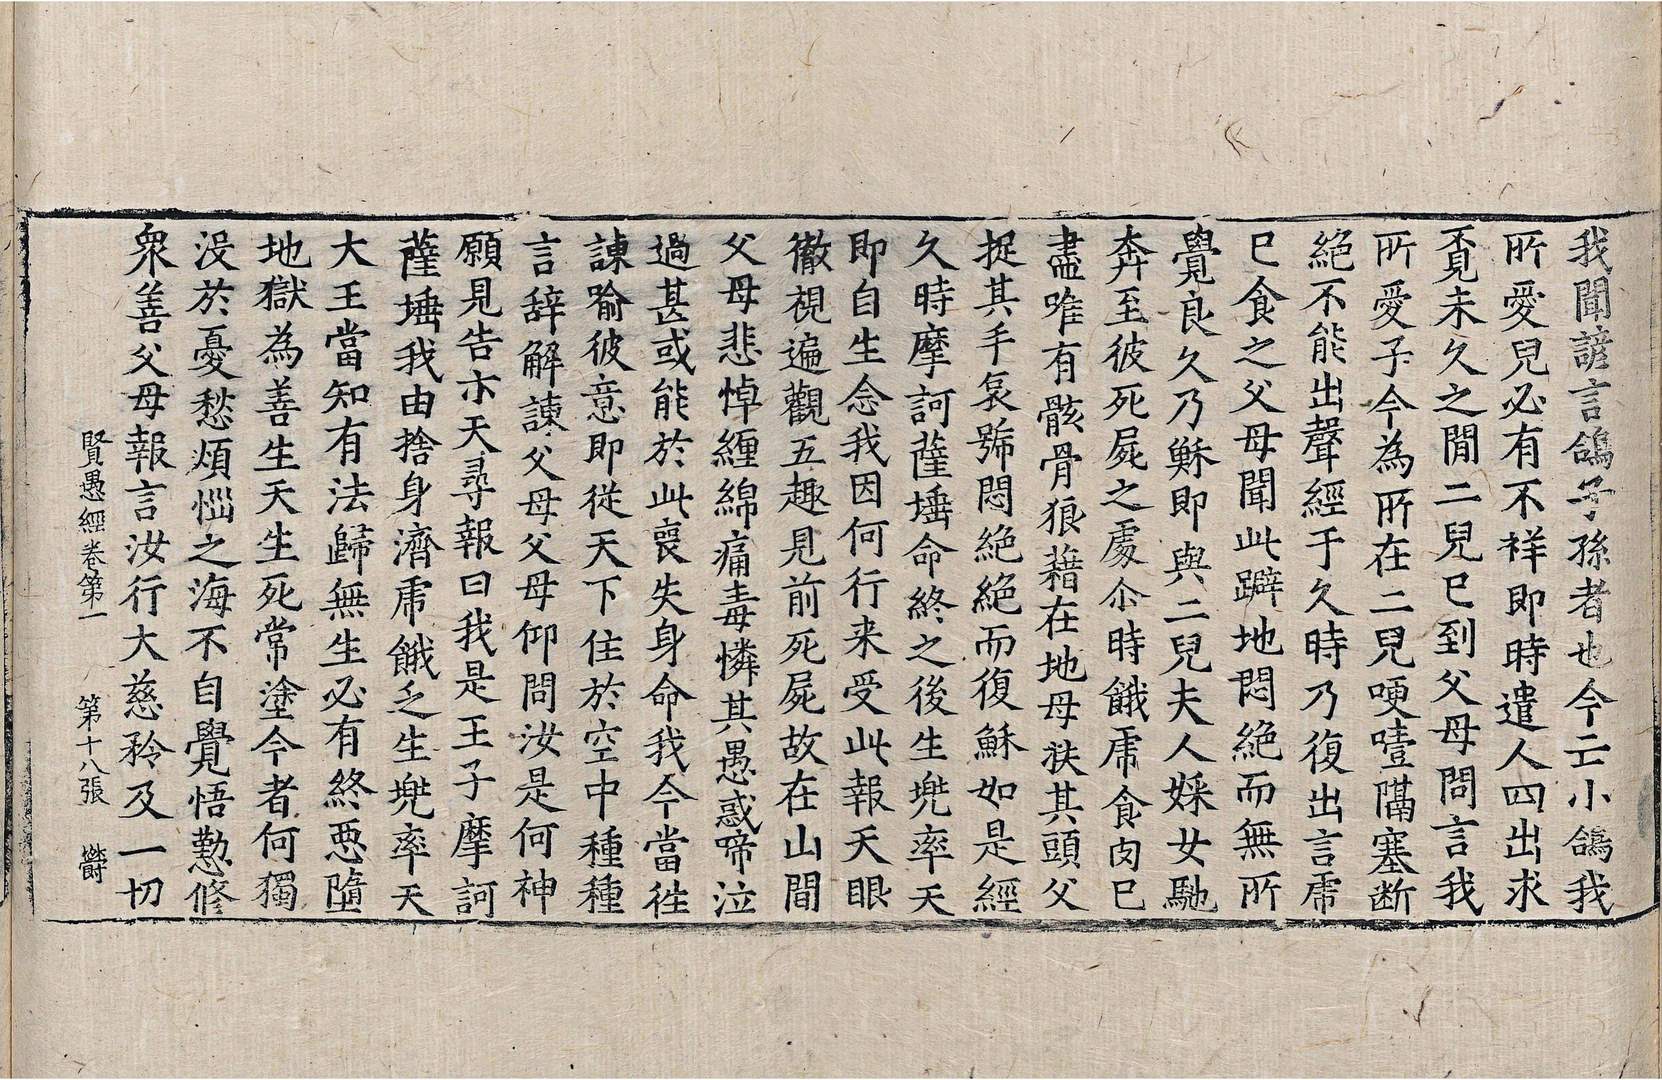 我聞諺言鴿子孫者也今亡小鴿我
所愛兒必有不祥即時遣人四出求
覔未久之閒二兒已到父母問言我
所愛子今為所在二兒哽噎隔塞断
絕不能出聲經于久時乃復出言虎
已食之父母聞此躃地悶絕而無所
覺良久乃穌即與二兒夫人婇女馳
奔至彼死屍之處尒時餓虎食肉已
盡唯有骸骨狼藉在地母扶其頭父
捉其手哀號悶絕絕而復穌如是經
久時摩訶薩埵命終之後生兠率天
即自生念我因何行来受此報天眼
徹視遍觀五趣見前死屍故在山間
父母悲悼纏綿痛毒憐其愚惑啼泣
過甚或能於此喪失身命我今當徃
諫喻彼意即從天下住於空中種種
言辞解諫父母父母仰問汝是何神
願見告示天尋報曰我是王子摩訶
薩埵我由捨身濟虎餓乏生兠率天
大王當知有法歸無生必有終惡墮
地獄為善生天生死常塗今者何獨
沒於憂愁煩惱之海不自覺悟懃修
衆善父母報言汝行大慈矜及一切
賢愚經卷第一 第十八張 欝